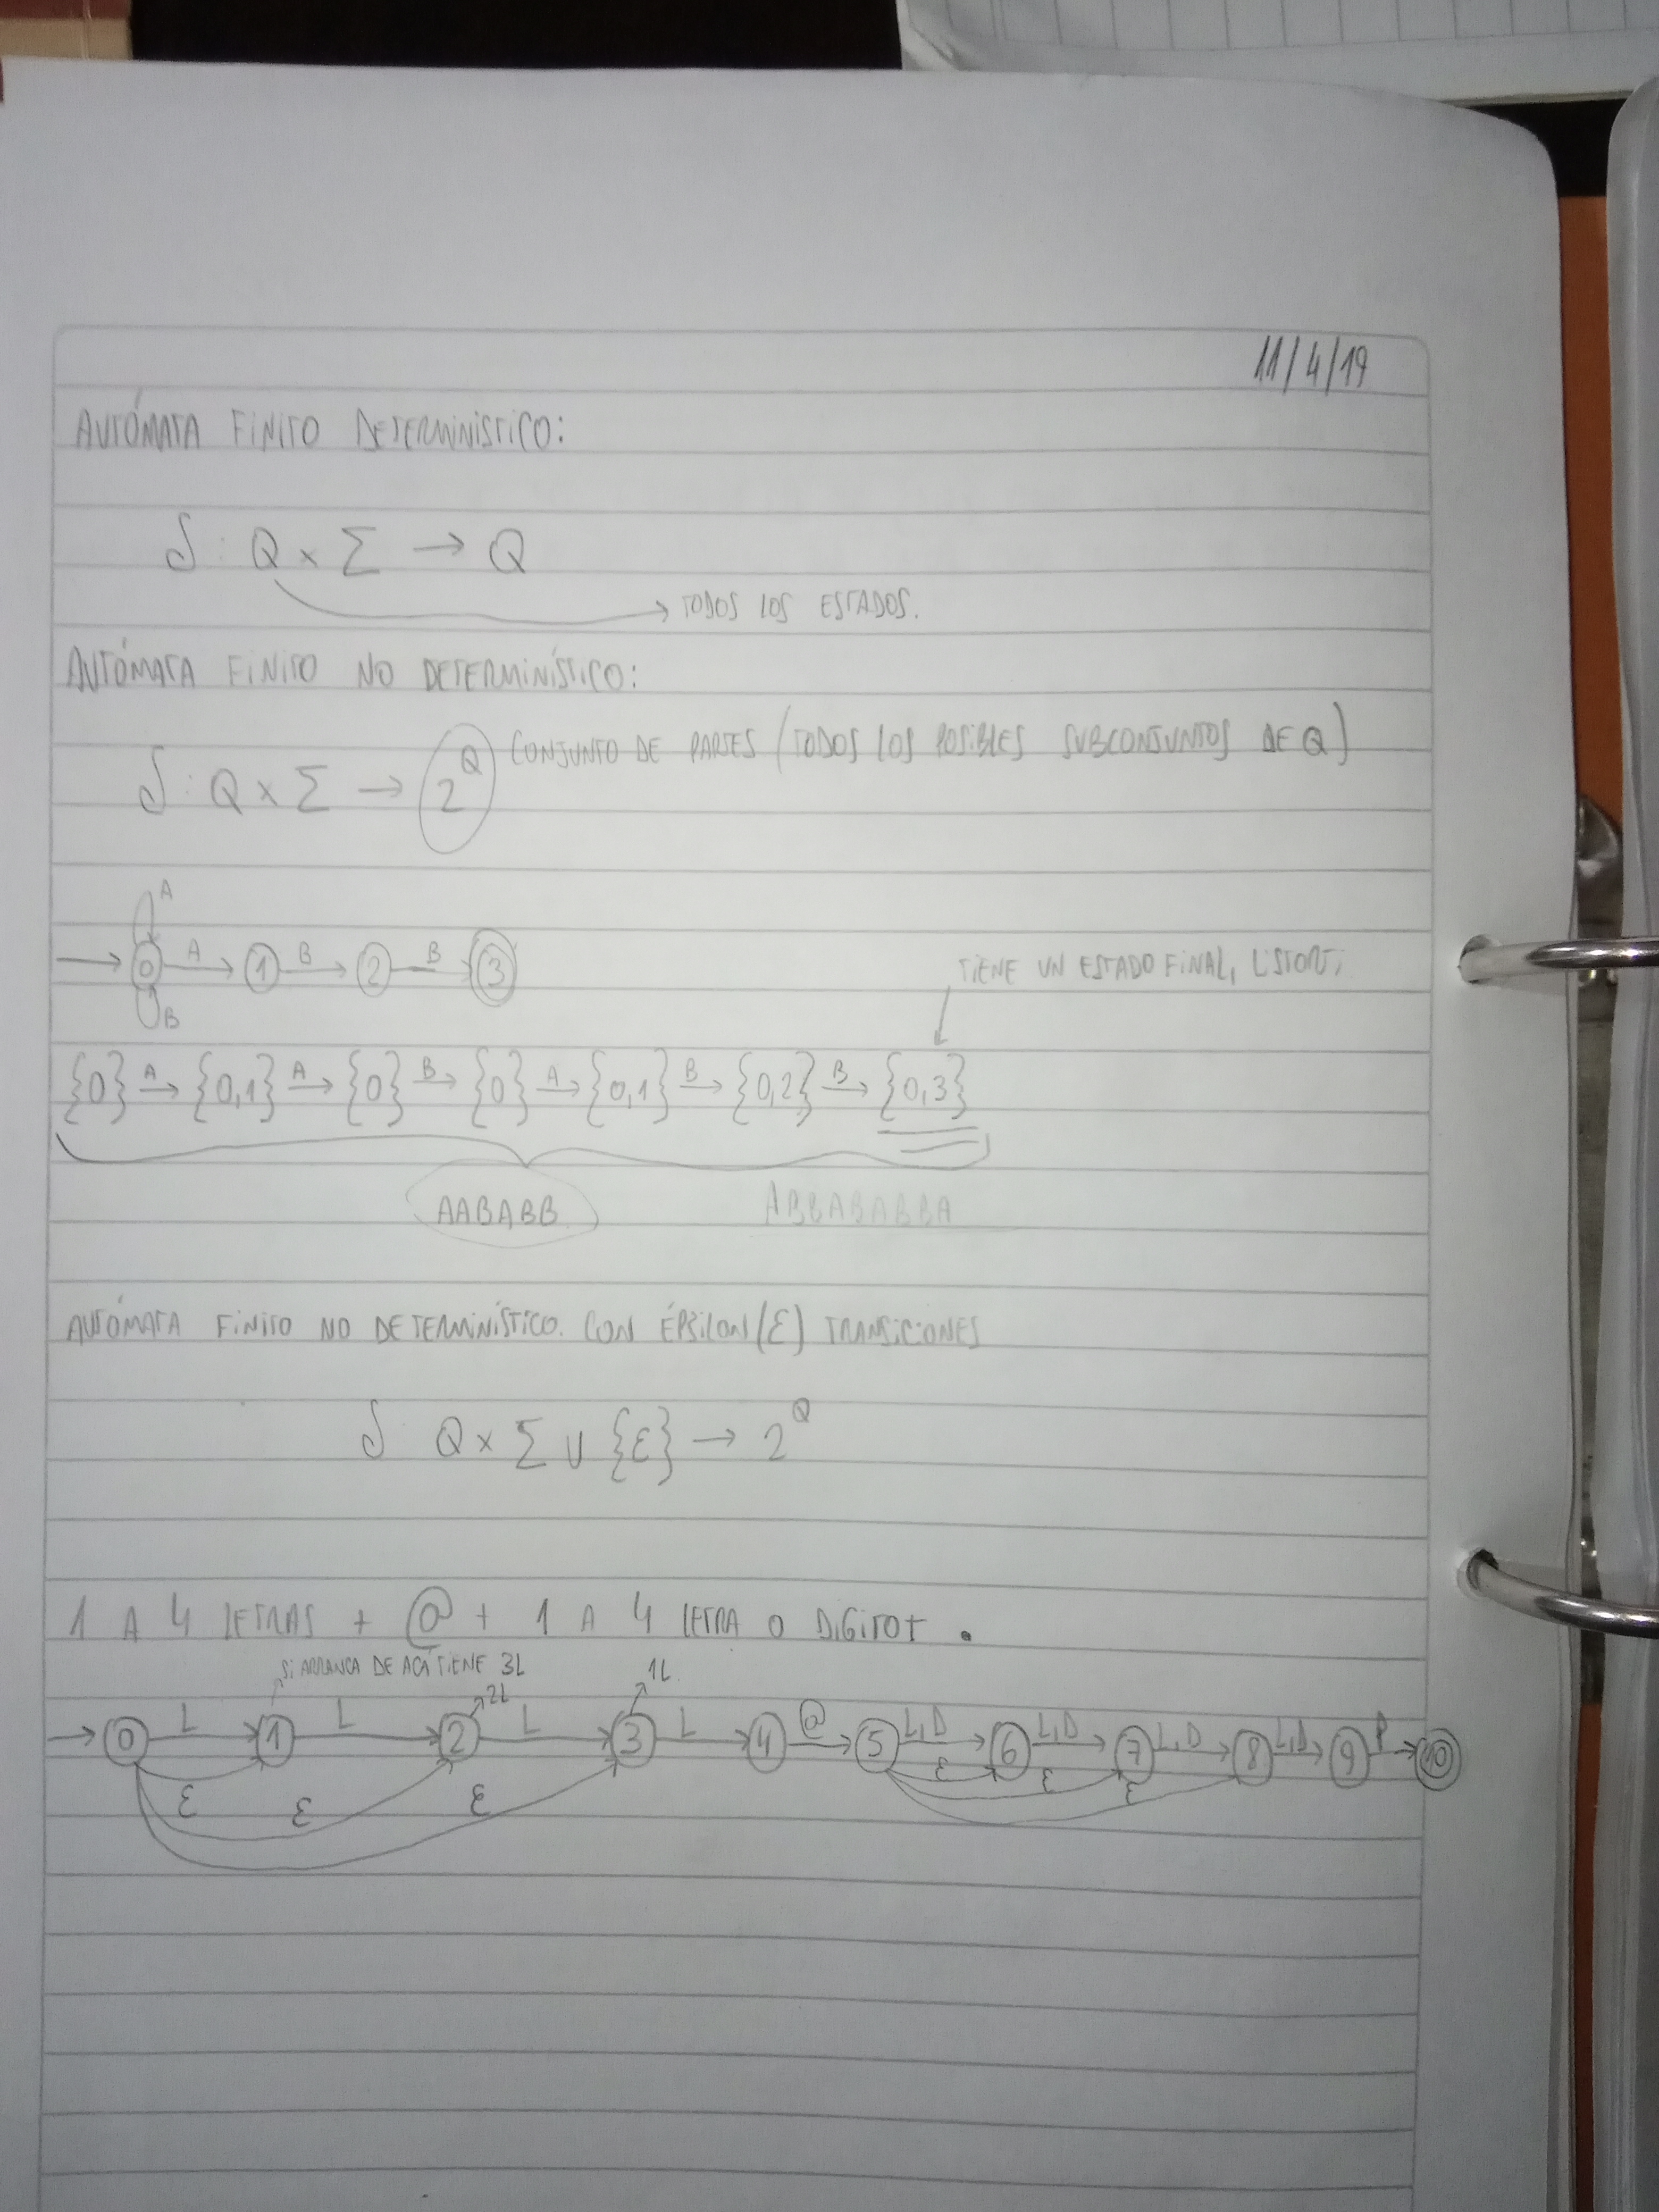 11/4/19
AUTÓMATA FINITO DETERMINÍSTICO:
δ: Q x Σ → Q
→ TODOS LOS ESTADOS.
AUTÓMATA FINITO NO DETERMINÍSTICO:
CONJUNTO DE PARTES (TODOS LOS POSIBLES SUBCONJUNTOS DE Q)
δ: Q x Σ → 2^Q
A
→ 0 A → 1 B → 2 B 3
B
TIENE UN ESTADO FINAL,
{0} A→ {0,1} A→ {0} B→ {0} A→ {0,1} B→ {0,2} B→ {0,3}
AABABB ABBABABBA
AUTÓMATA FINITO NO DETERMINÍSTICO. CON ÉPSILON (ε) TRANSICIONES
δ Q x Σ ∪ {ε} → 2^Q
1 A 4 LETRAS + @ + 1 A 4 LETRA O DIGITO + .
SI ARRANCA DE ACÁ TIENE 3L 2L 1L
→ 0 L → 1 L → 2 L → 3 L → 4 @ → 5 L,D → 6 L,D → 7 L,D → 8 L,D → 9 P → 10
ε ε ε ε ε ε